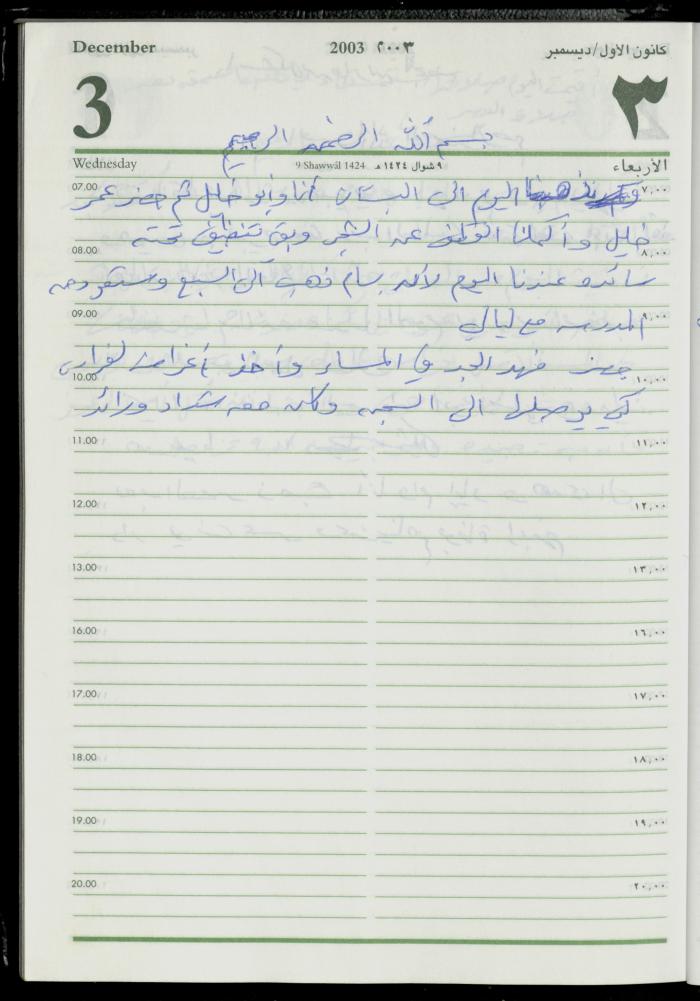 December 2003 ٢٠٠٣ كانون الاول/ديسمبر
3 ٣
بسم الله الرحمن الرحيم
Wednesday 9 Shawwāl 1424 ٩ شوال ١٤٢٤ هـ الأربعاء
07.00 اليوم الى البستان أنا وأبو خليل ثم حضر عمر ٧,٠٠
خليل وأكملنا القطف عن الشجر وبقي تنظيف تحته
08.00 ٨,٠٠
سائده عندنا اليوم لأن بسام ذهب الى السبع وستقوم
09.00 المدرسه مع ليالي ٩,٠٠
حضر فهد الجد في المساء وأخذ أغراض
10.00 ١٠,٠٠
كي يوصلها الى السجن وكان معه شداد ورائد
11.00 ١١,٠٠
12.00 ١٢,٠٠
13.00 ١٣,٠٠
16.00 ١٦,٠٠
17.00 ١٧,٠٠
18.00 ١٨,٠٠
19.00 ١٩,٠٠
20.00 ٢٠,٠٠